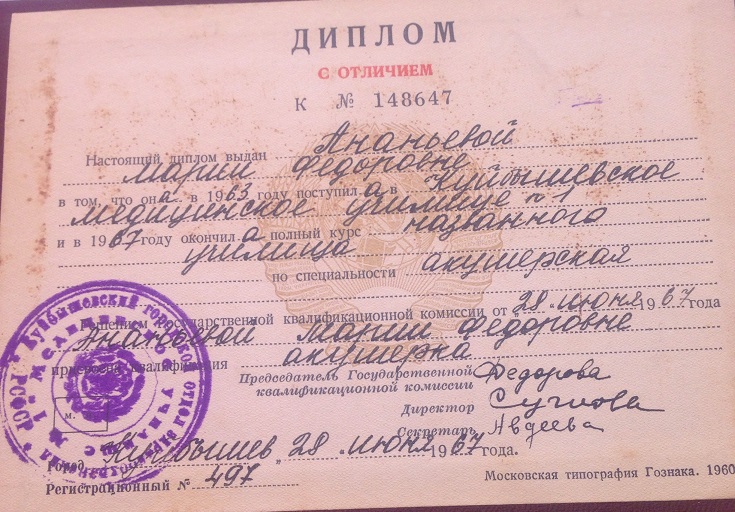 ДИПЛОМ
С ОТЛИЧИЕМ
К № 148647
Настоящий диплом выдан Ананьевой
Марии Федоровне
в том, что она в 1963 году поступила в Куйбышевское
медицинское училище №1
и в 1967 году окончила полный курс названного
училища
по специальности акушерская
Решением Государственной квалификационной комиссии от 28 июня 1967 года
Ананьевой Марии Федоровне
присвоена квалификация акушерка
Председатель Государственной
квалификационной комиссии Федорова
Директор
Секретарь Авдеева
Город Куйбышев, 28 июня 1967 г.
Регистрационный № 497
Московская типография Гознака. 1960
М.